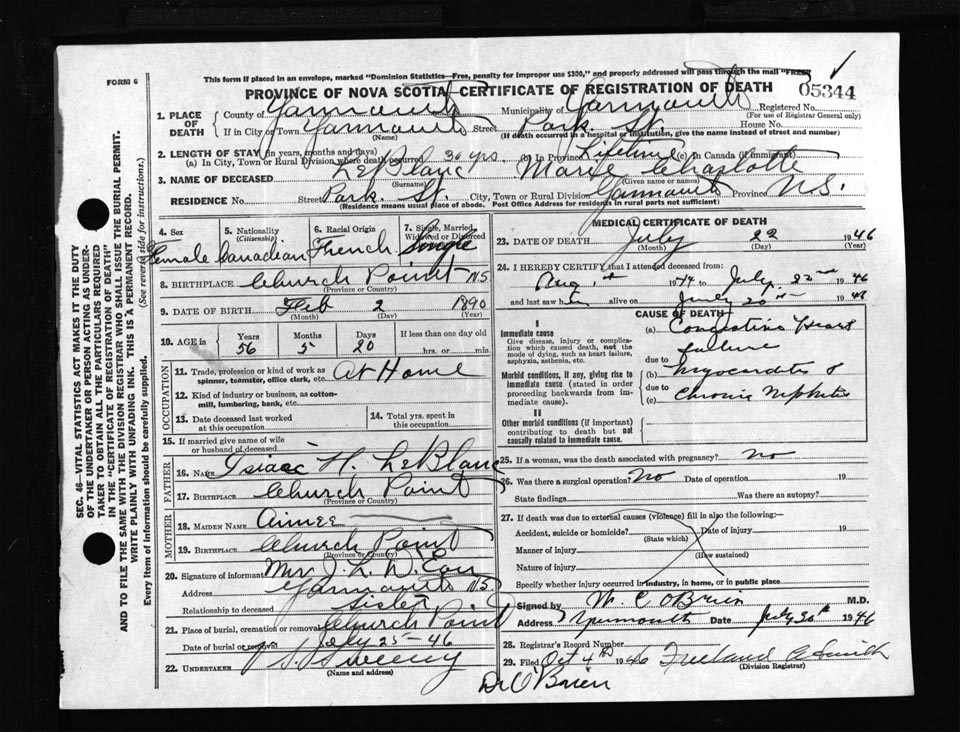 FORM 6
This form if placed in an envelope, marked "Dominion Statistics—Free, penalty for improper use $300," and properly addressed will pass through the mail "FREE"
PROVINCE OF NOVA SCOTIA—CERTIFICATE OF REGISTRATION OF DEATH
05344
1. PLACE OF DEATH
County of Yarmouth Municipality of Yarmouth Registered No.
(For use of Registrar General only)
If in City or Town Yarmouth Street Park St. House No.
(Name) (If death occurred in a hospital or institution, give the name instead of street and number)
2. LENGTH OF STAY (in years, months and days)
(a) In City, Town or Rural Division where death occurred 30 yrs. (b) In Province Lifetime (c) In Canada (if immigrant)
3. NAME OF DECEASED LeBlanc Marie Charlotte
(Surname) (Given name or names)
RESIDENCE No. Street Park St. City, Town or Rural Division Yarmouth Province N.S.
(Residence means usual place of abode. Post Office Address for residents in rural parts not sufficient)
4. Sex 5. Nationality (Citizenship) 6. Racial Origin 7. Single, Married, Widowed or Divorced
Female Canadian French Single
8. BIRTHPLACE Church Point N.S
(Province or Country)
9. DATE OF BIRTH Feb 2 1890
(Month) (Day) (Year)
10. AGE in Years Months Days If less than one day old
56 5 20 hrs. or min.
OCCUPATION
11. Trade, profession or kind of work as spinner, teamster, office clerk, etc. At Home
12. Kind of industry or business, as cotton-mill, lumbering, bank, etc.
13. Date deceased last worked at this occupation
14. Total yrs. spent in this occupation
15. If married give name of wife or husband of deceased
FATHER
16. NAME Isaac H. LeBlanc
17. BIRTHPLACE Church Point
(Province or Country)
MOTHER
18. MAIDEN NAME Aimee
19. BIRTHPLACE Church Point
(Province or Country)
20. Signature of informant Mrs J. L. D.
Address Yarmouth N.S
Relationship to deceased Sister
21. Place of burial, cremation or removal Church Point
Date of burial or removal July 25-46
22. UNDERTAKER Sweeny
(Name and address)
MEDICAL CERTIFICATE OF DEATH
23. DATE OF DEATH July 22 1946
(Month) (Day) (Year)
24. I HEREBY CERTIFY that I attended deceased from:
Aug 1st 1944 to July 22nd 1946
and last saw her alive on 20th 194
CAUSE OF DEATH
I
Immediate cause
Give disease, injury or complication which caused death, not the mode of dying, such as heart failure, asphyxia, asthenia, etc.
(a) Congestive Heart failure
due to
Morbid conditions, if any, giving rise to immediate cause (stated in order proceeding backwards from immediate cause).
(b) Myocarditis &
due to
(c) Chronic Nephritis
II
Other morbid conditions (if important) contributing to death but not causally related to immediate cause.
25. If a woman, was the death associated with pregnancy? No
26. Was there a surgical operation? No Date of operation 19
State findings Was there an autopsy?
27. If death was due to external causes (violence) fill in also the following:—
Accident, suicide or homicide? Date of injury 19
(State which)
Manner of injury
(How sustained)
Nature of injury
Specify whether injury occurred in industry, in home, or in public place
Signed by W. C O'Brien M.D.
Address Yarmouth Date July 30th 1946
28. Registrar's Record Number
29. Filed Oct 4th 1946 Freeland A Smith
(Division Registrar)
Dr O'Brien
SEC. 46—VITAL STATISTICS ACT MAKES IT THE DUTY
OF THE UNDERTAKER OR PERSON ACTING AS UNDER-
TAKER TO OBTAIN ALL THE PARTICULARS REQUIRED
IN THE "CERTIFICATE OF REGISTRATION OF DEATH"
AND TO FILE THE SAME WITH THE DIVISION REGISTRAR WHO SHALL ISSUE THE BURIAL PERMIT.
WRITE PLAINLY WITH UNFADING INK. THIS IS A PERMANENT RECORD.
Every item of information should be carefully supplied. (See reverse side for instructions.)